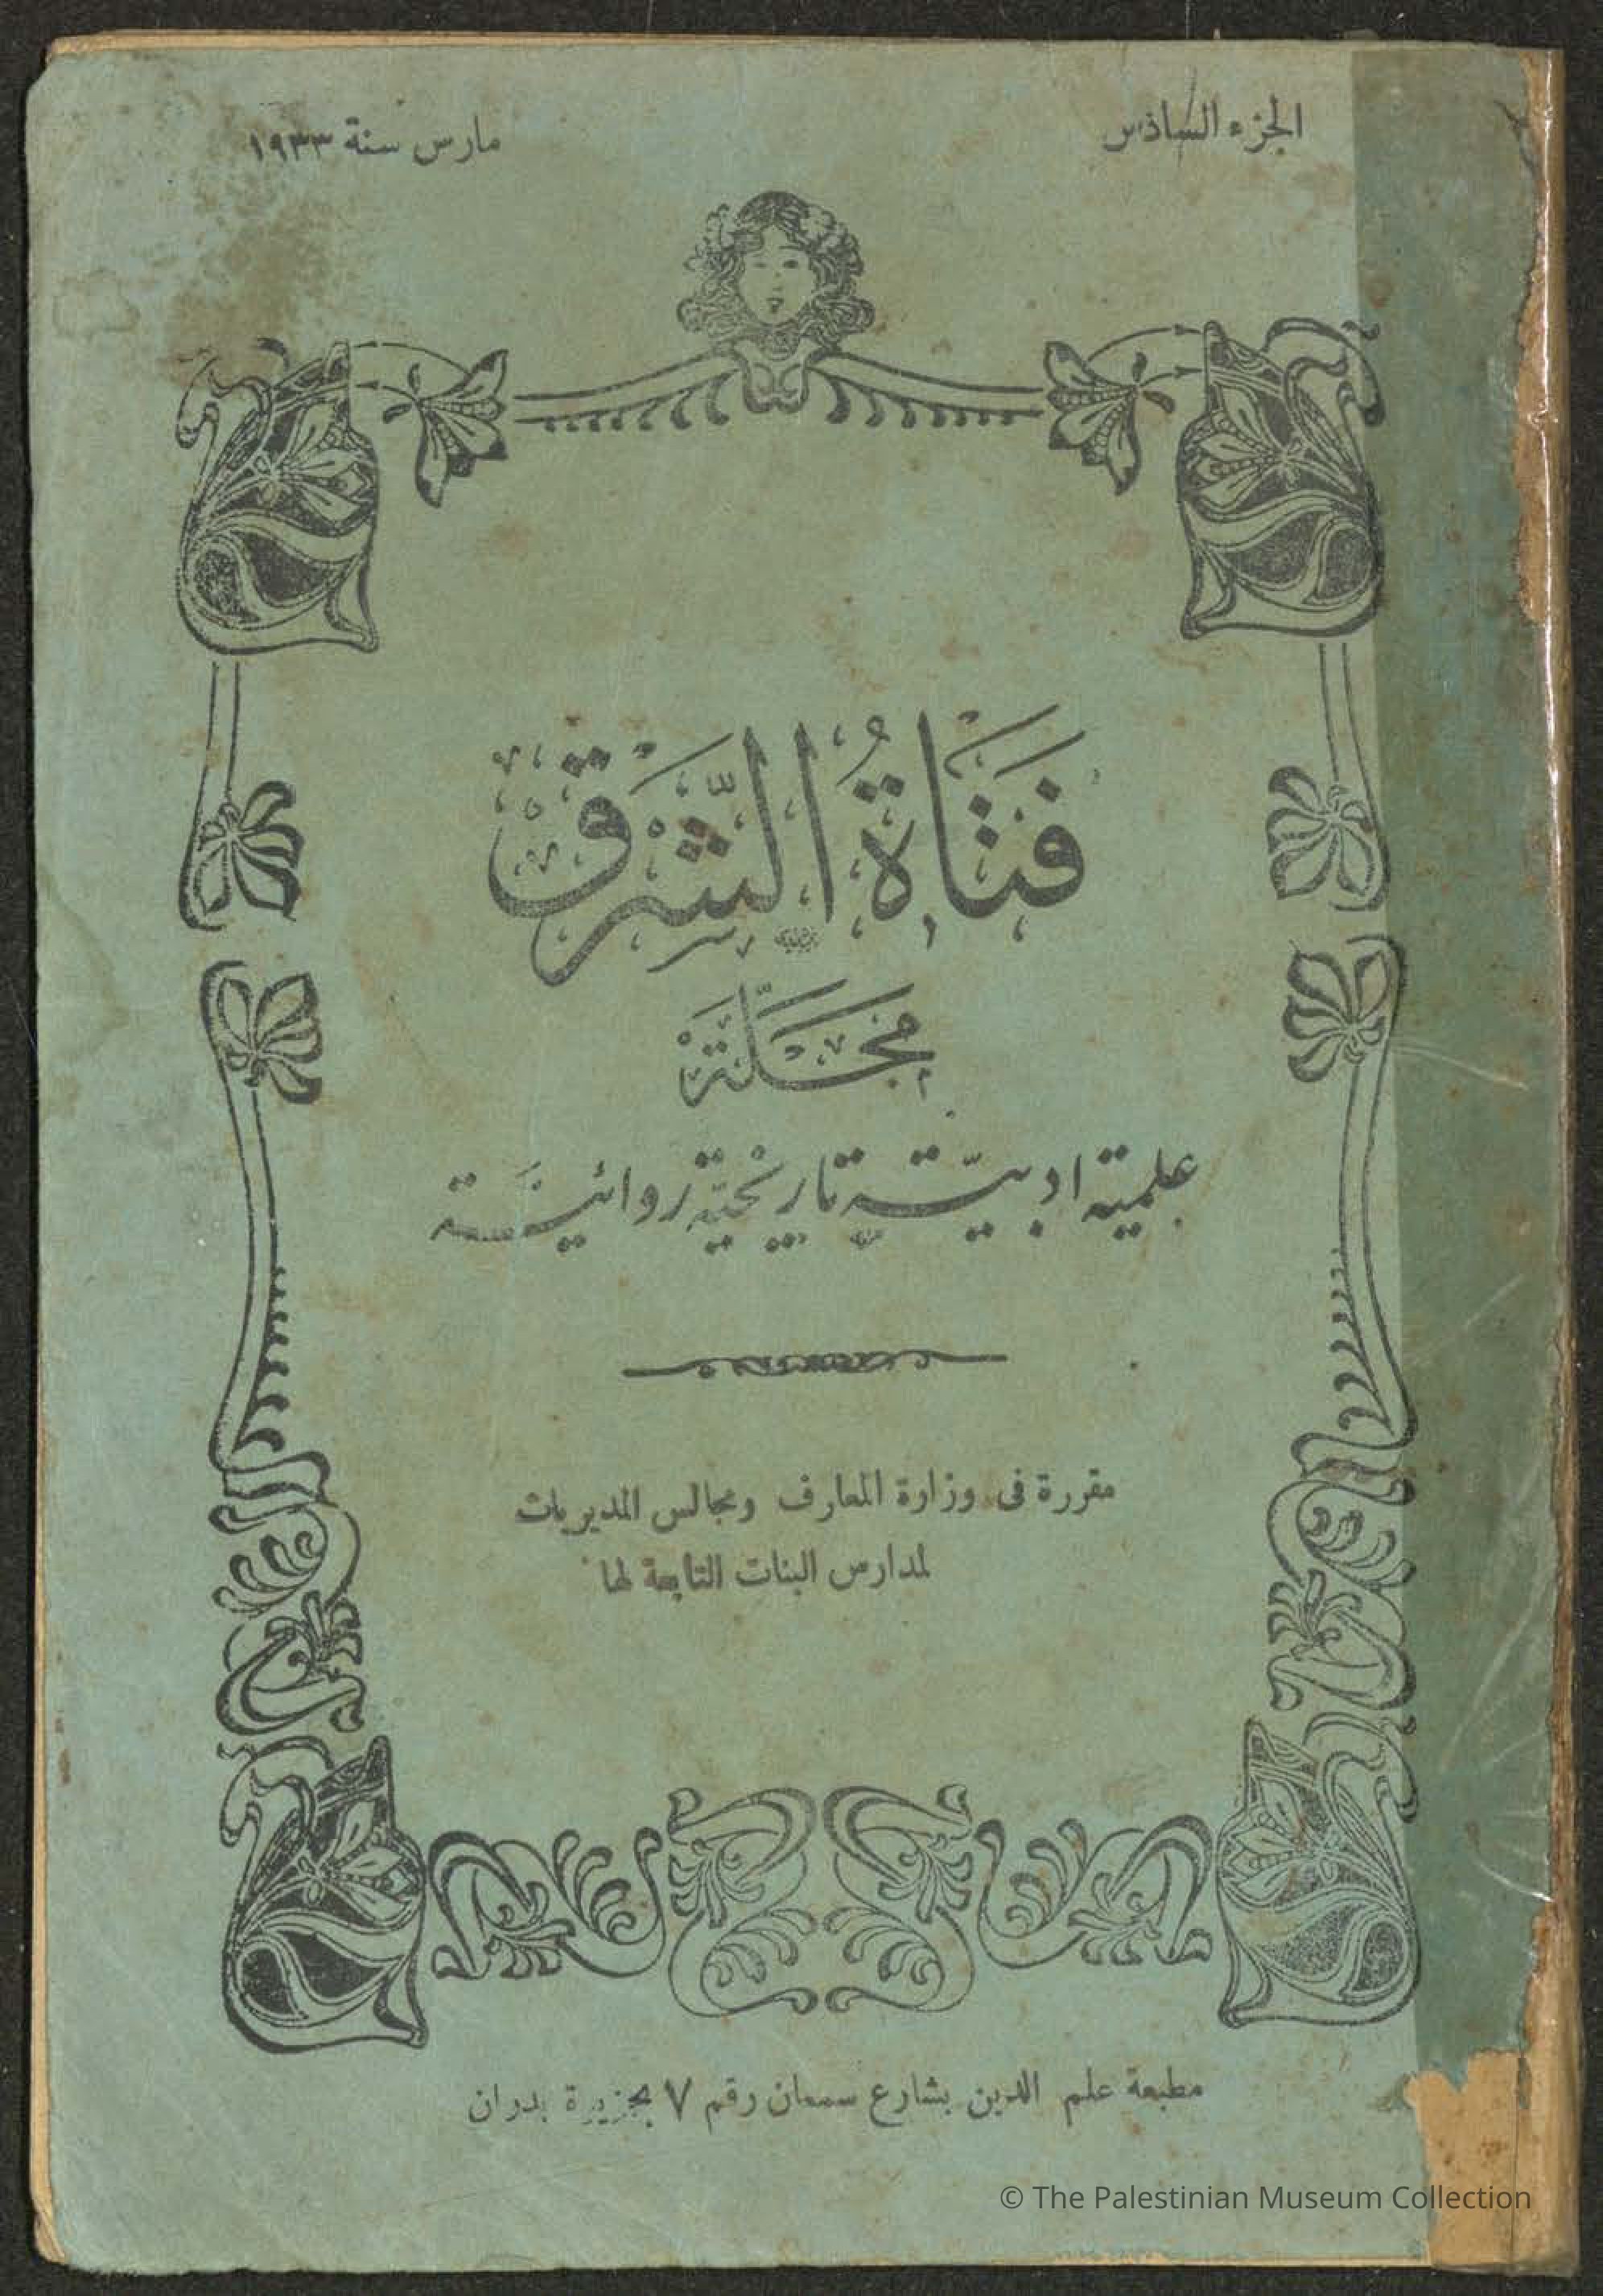 الجزء السادس
مارس سنة ١٩٣٣
فَتَاةُ الشَّرق
مَجَلَّة
علمية ادبيّة تاريخيّة روائيَّة
مقررة فى وزارة المعارف ومجالس المديريات
لمدارس البنات التابعة لها
مطبعة علم الدين بشارع سمعان رقم ٧ بجزيرة بدران
© The Palestinian Museum Collection